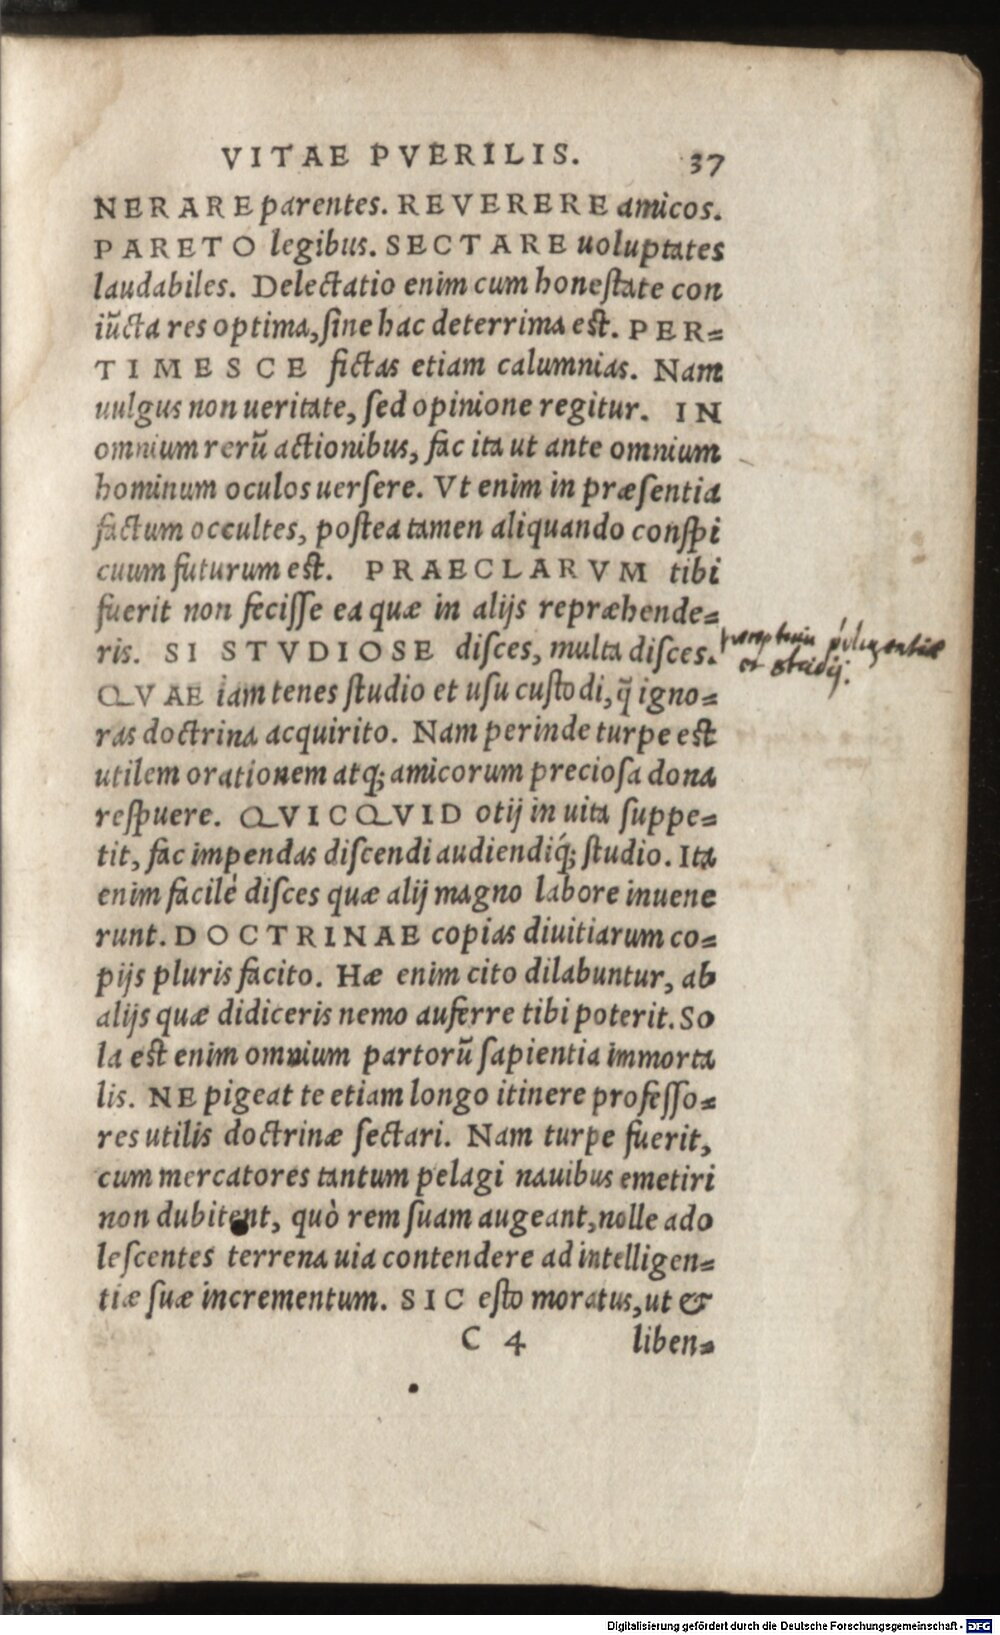 VITAE PVERILIS. 37
NERARE parentes. REVERERE amicos.
PARETO legibus. SECTARE uoluptates
laudabiles. Delectatio enim cum honeſtate con
iũcta res optima, ſine hac deterrima est. PER-
TIMESCE fictas etiam calumnias. Nam
uulgus non ueritate, ſed opinione regitur. IN
omnium rerũ actionibus, fac ita ut ante omnium
hominum oculos uerſere. Vt enim in præſentia
factum occultes, poſtea tamen aliquando conſpi
cuum futurum est. PRAECLARVM tibi
fuerit non feciſſe ea quæ in alijs repræhende-
ris. SI STVDIOSE diſces, multa diſces.
et studij.
QVAE iam tenes ſtudio et uſu cuſtodi, q̃ igno-
ras doctrina acquirito. Nam perinde turpe est
utilem orationem atq; amicorum precioſa dona
reſpuere. QVICQVID otij in uita ſuppe-
tit, fac impendas diſcendi audiendiq́; ſtudio. Ita
enim facilè diſces quæ alij magno labore inuene
runt. DOCTRINAE copias diuitiarum co-
pijs pluris facito. Hæ enim cito dilabuntur, ab
alijs quæ didiceris nemo auferre tibi poterit. So
la est enim omnium partorũ ſapientia immorta
lis. NE pigeat te etiam longo itinere profeſſo-
res utilis doctrinæ ſectari. Nam turpe fuerit,
cum mercatores tantum pelagi nauibus emetiri
non dubitent, quò rem ſuam augeant, nolle ado
leſcentes terrena uia contendere ad intelligen-
tiæ ſuæ incrementum. SIC eſto moratus, ut &
C 4 liben-
Digitalisierung gefördert durch die Deutsche Forschungsgemeinschaft - DFG